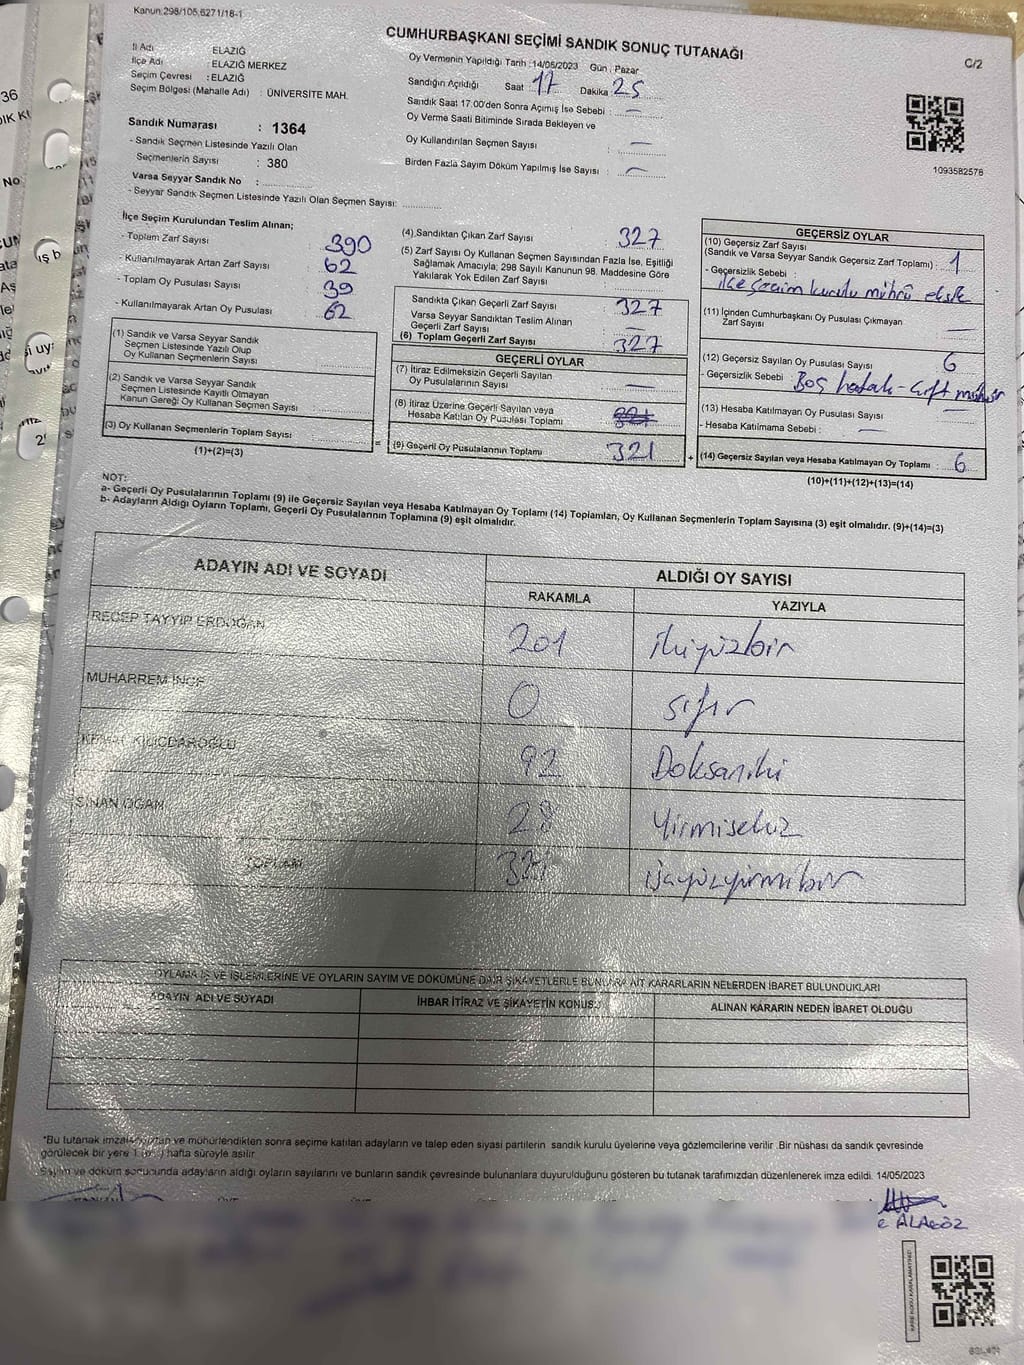 Kanun:298/105,6271/18-1
CUMHURBAŞKANI SEÇİMİ SANDIK SONUÇ TUTANAĞI
C/2
İl Adı : ELAZIĞ
İlçe Adı : ELAZIĞ MERKEZ
Seçim Çevresi : ELAZIĞ
Seçim Bölgesi (Mahalle Adı) : ÜNİVERSİTE MAH.
Sandık Numarası : 1364
- Sandık Seçmen Listesinde Yazılı Olan
Seçmenlerin Sayısı : 380
Varsa Seyyar Sandık No :
- Seyyar Sandık Seçmen Listesinde Yazılı Olan Seçmen Sayısı:
Oy Vermenin Yapıldığı Tarih :14/05/2023 Gün : Pazar
Sandığın Açıldığı Saat : 17 Dakika 25
Sandık Saat 17:00'den Sonra Açılmış İse Sebebi : —
Oy Verme Saati Bitiminde Sırada Bekleyen ve
Oy Kullandırılan Seçmen Sayısı : —
Birden Fazla Sayım Döküm Yapılmış İse Sayısı : —
1093582576
İlçe Seçim Kurulundan Teslim Alınan;
- Toplam Zarf Sayısı : 390
- Kullanılmayarak Artan Zarf Sayısı : 62
- Toplam Oy Pusulası Sayısı : 39
- Kullanılmayarak Artan Oy Pusulası : 62
(1) Sandık ve Varsa Seyyar Sandık
Seçmen Listesinde Yazılı Olup
Oy Kullanan Seçmenlerin Sayısı :
(2) Sandık ve Varsa Seyyar Sandık
Seçmen Listesinde Kayıtlı Olmayan
Kanun Gereği Oy Kullanan Seçmen Sayısı :
(3) Oy Kullanan Seçmenlerin Toplam Sayısı :
(1)+(2)=(3)
(4) Sandıktan Çıkan Zarf Sayısı : 327
(5) Zarf Sayısı Oy Kullanan Seçmen Sayısından Fazla İse, Eşitliği
Sağlamak Amacıyla; 298 Sayılı Kanunun 98. Maddesine Göre
Yakılarak Yok Edilen Zarf Sayısı :
Sandıkta Çıkan Geçerli Zarf Sayısı : 327
Varsa Seyyar Sandıktan Teslim Alınan
Geçerli Zarf Sayısı : —
(6) Toplam Geçerli Zarf Sayısı : 327
GEÇERLİ OYLAR
(7) İtiraz Edilmeksizin Geçerli Sayılan
Oy Pusulalarının Sayısı : —
(8) İtiraz Üzerine Geçerli Sayılan veya
Hesaba Katılan Oy Pusulası Toplamı :
= (9) Geçerli Oy Pusulalarının Toplamı : 321
GEÇERSİZ OYLAR
(10) Geçersiz Zarf Sayısı
(Sandık ve Varsa Seyyar Sandık Geçersiz Zarf Toplamı) : 1
- Geçersizlik Sebebi :
ilçe seçim kurulu mührü eksik
(11) İçinden Cumhurbaşkanı Oy Pusulası Çıkmayan
Zarf Sayısı : —
(12) Geçersiz Sayılan Oy Pusulası Sayısı : 6
- Geçersizlik Sebebi : Boş hatalı - çift mühür
(13) Hesaba Katılmayan Oy Pusulası Sayısı : —
- Hesaba Katılmama Sebebi : —
+ (14) Geçersiz Sayılan veya Hesaba Katılmayan Oy Toplamı : 6
(10)+(11)+(12)+(13)=(14)
NOT:
a- Geçerli Oy Pusulalarının Toplamı (9) ile Geçersiz Sayılan veya Hesaba Katılmayan Oy Toplamı (14) Toplamları, Oy Kullanan Seçmenlerin Toplam Sayısına (3) eşit olmalıdır. (9)+(14)=(3)
b- Adayların Aldığı Oyların Toplamı, Geçerli Oy Pusulalarının Toplamına (9) eşit olmalıdır.
ADAYIN ADI VE SOYADI
ALDIĞI OY SAYISI
RAKAMLA YAZIYLA
RECEP TAYYİP ERDOĞAN 201 ikiyüzbir
MUHARREM İNCE 0 sıfır
KEMAL KILIÇDAROĞLU 92 Doksaniki
SİNAN OĞAN 28 Yirmisekiz
TOPLAM 321 üçyüzyirmibir
OYLAMA İŞ VE İŞLEMLERİNE VE OYLARIN SAYIM VE DÖKÜMÜNE DAİR ŞİKAYETLERLE BUNLARA AİT KARARLARIN NELERDEN İBARET BULUNDUKLARI
ADAYIN ADI VE SOYADI İHBAR İTİRAZ VE ŞİKAYETİN KONUSU ALINAN KARARIN NEDEN İBARET OLDUĞU
*Bu tutanak imzalandıktan ve mühürlendikten sonra seçime katılan adayların ve talep eden siyasi partilerin sandık kurulu üyelerine veya gözlemcilerine verilir .Bir nüshası da sandık çevresinde
görülecek bir yere 1 (bir) hafta süreyle asılır.
Sayım ve döküm sonucunda adayların aldığı oyların sayılarını ve bunların sandık çevresinde bulunanlara duyurulduğunu gösteren bu tutanak tarafımızdan düzenlenerek imza edildi. 14/05/2023
e ALAGÖZ